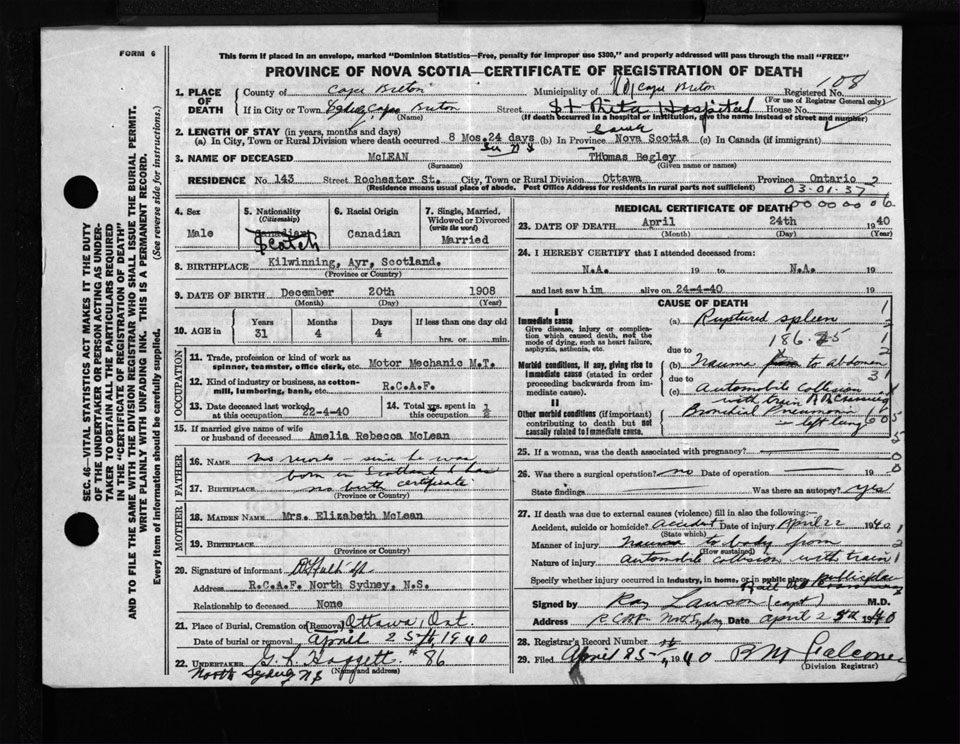 FORM 6
This form if placed in an envelope, marked "Dominion Statistics—Free, penalty for improper use $300," and properly addressed will pass through the mail "FREE"
PROVINCE OF NOVA SCOTIA—CERTIFICATE OF REGISTRATION OF DEATH
SEC. 46—VITAL STATISTICS ACT MAKES IT THE DUTY
OF THE UNDERTAKER OR PERSON ACTING AS UNDER-
TAKER TO OBTAIN ALL THE PARTICULARS REQUIRED
IN THE "CERTIFICATE OF REGISTRATION OF DEATH"
AND TO FILE THE SAME WITH THE DIVISION REGISTRAR WHO SHALL ISSUE THE BURIAL PERMIT.
WRITE PLAINLY WITH UNFADING INK. THIS IS A PERMANENT RECORD.
Every item of information should be carefully supplied. (See reverse side for instructions.)
1. PLACE OF DEATH County of Cape Breton Municipality of Cape Breton Registered No. 108
(For use of Registrar General only)
If in City or Town Sydney, Cape Breton Street St Rita Hospital House No.
(Name) (If death occurred in a hospital or institution, give the name instead of street and number)
2. LENGTH OF STAY (in years, months and days)
(a) In City, Town or Rural Division where death occurred 8 Mos. 24 days (b) In Province Nova Scotia (c) In Canada (if immigrant)
3. NAME OF DECEASED McLEAN Thomas Begley
(Surname) (Given name or names)
RESIDENCE No. 143 Street Rochester St. City, Town or Rural Division Ottawa Province Ontario 2
(Residence means usual place of abode. Post Office Address for residents in rural parts not sufficient) 03.01.37
4. Sex Male
5. Nationality (Citizenship) Canadian Scotch
6. Racial Origin Canadian
7. Single, Married, Widowed or Divorced (write the word) Married
8. BIRTHPLACE Kilwinning, Ayr, Scotland.
(Province or Country)
9. DATE OF BIRTH December 20th 1908
(Month) (Day) (Year)
10. AGE in Years 31 Months 4 Days 4 If less than one day old hrs. or min.
OCCUPATION
11. Trade, profession or kind of work as spinner, teamster, office clerk, etc. Motor Mechanic M.T.
12. Kind of industry or business, as cotton-mill, lumbering, bank, etc. R.C.A.F.
13. Date deceased last worked at this occupation 22-4-40
14. Total yrs. spent in this occupation 1/2
15. If married give name of wife or husband of deceased Amelia Rebecca McLean
FATHER
16. NAME no work – since he was
born in Scotland I has
17. BIRTHPLACE no birth certificate
(Province or Country)
MOTHER
18. MAIDEN NAME Mrs. Elizabeth McLean
19. BIRTHPLACE
(Province or Country)
20. Signature of informant
Address R.C.A.F. North Sydney, N.S.
Relationship to deceased None
21. Place of Burial, Cremation or Removal Ottawa, Ont.
Date of burial or removal April 25th, 1940
22. UNDERTAKER G. L. Haggett #86
North Sydney NS (Name and address)
MEDICAL CERTIFICATE OF DEATH
23. DATE OF DEATH April 24th 1940
(Month) (Day) (Year)
24. I HEREBY CERTIFY that I attended deceased from:
N.A. 19 to N.A. 19
and last saw him alive on 24-4-40 19
CAUSE OF DEATH
I
Immediate cause
Give disease, injury or complication which caused death, not the mode of dying, such as heart failure, asphyxia, asthenia, etc.
(a) Ruptured spleen
186.
due to
Morbid conditions, if any, giving rise to immediate cause (stated in order proceeding backwards from immediate cause).
(b) Trauma to abdomen
due to
(c) Automobile collision
with train
II
Other morbid conditions (if important) contributing to death but not causally related to Immediate cause.
Bronchial Pneumonia
left lung
25. If a woman, was the death associated with pregnancy?
26. Was there a surgical operation? no Date of operation
State findings Was there an autopsy? yes
27. If death was due to external causes (violence) fill in also the following:
Accident, suicide or homicide? accident Date of injury April 22 1940
(State which)
Manner of injury Trauma to body from
(How sustained)
Nature of injury automobile collision with train
Specify whether injury occurred in industry, in home, or in public place
Signed by Ray Lawson (capt) M.D.
Address R.C.A.F. North Sydney Date April 25th 1940
28. Registrar's Record Number
29. Filed April 25 1940 R M Falconer
(Division Registrar)